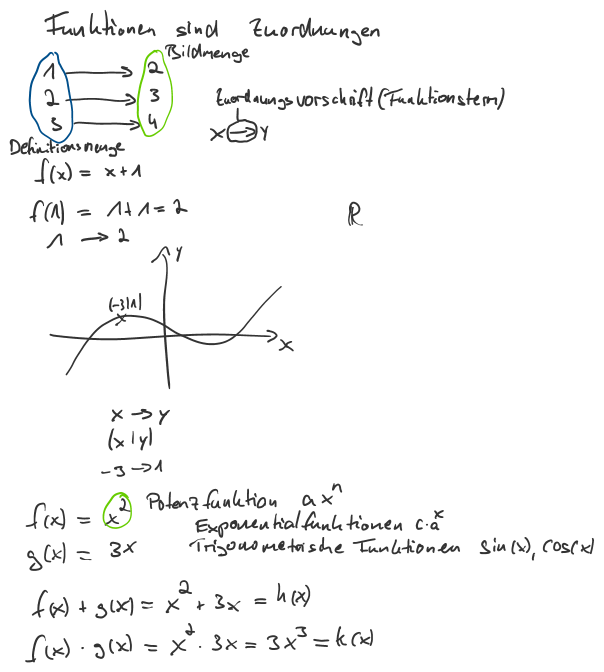 Funktionen sind Zuordnungen
Bildmenge
1 → 2
2 → 3
3 → 4
Zuordnungsvorschrift (Funktionsterm)
x → y
Definitionsmenge
f(x) = x+1
f(1) = 1+1 = 2
ℝ
1 → 2
y
(-3|1)
x
x → y
(x|y)
-3 → 1
f(x) = x² Potenzfunktion a xⁿ
Exponentialfunktionen c·aˣ
g(x) = 3x Trigonometrische Funktionen sin(x), cos(x)
f(x) + g(x) = x² + 3x = h(x)
f(x) · g(x) = x² · 3x = 3x³ = k(x)